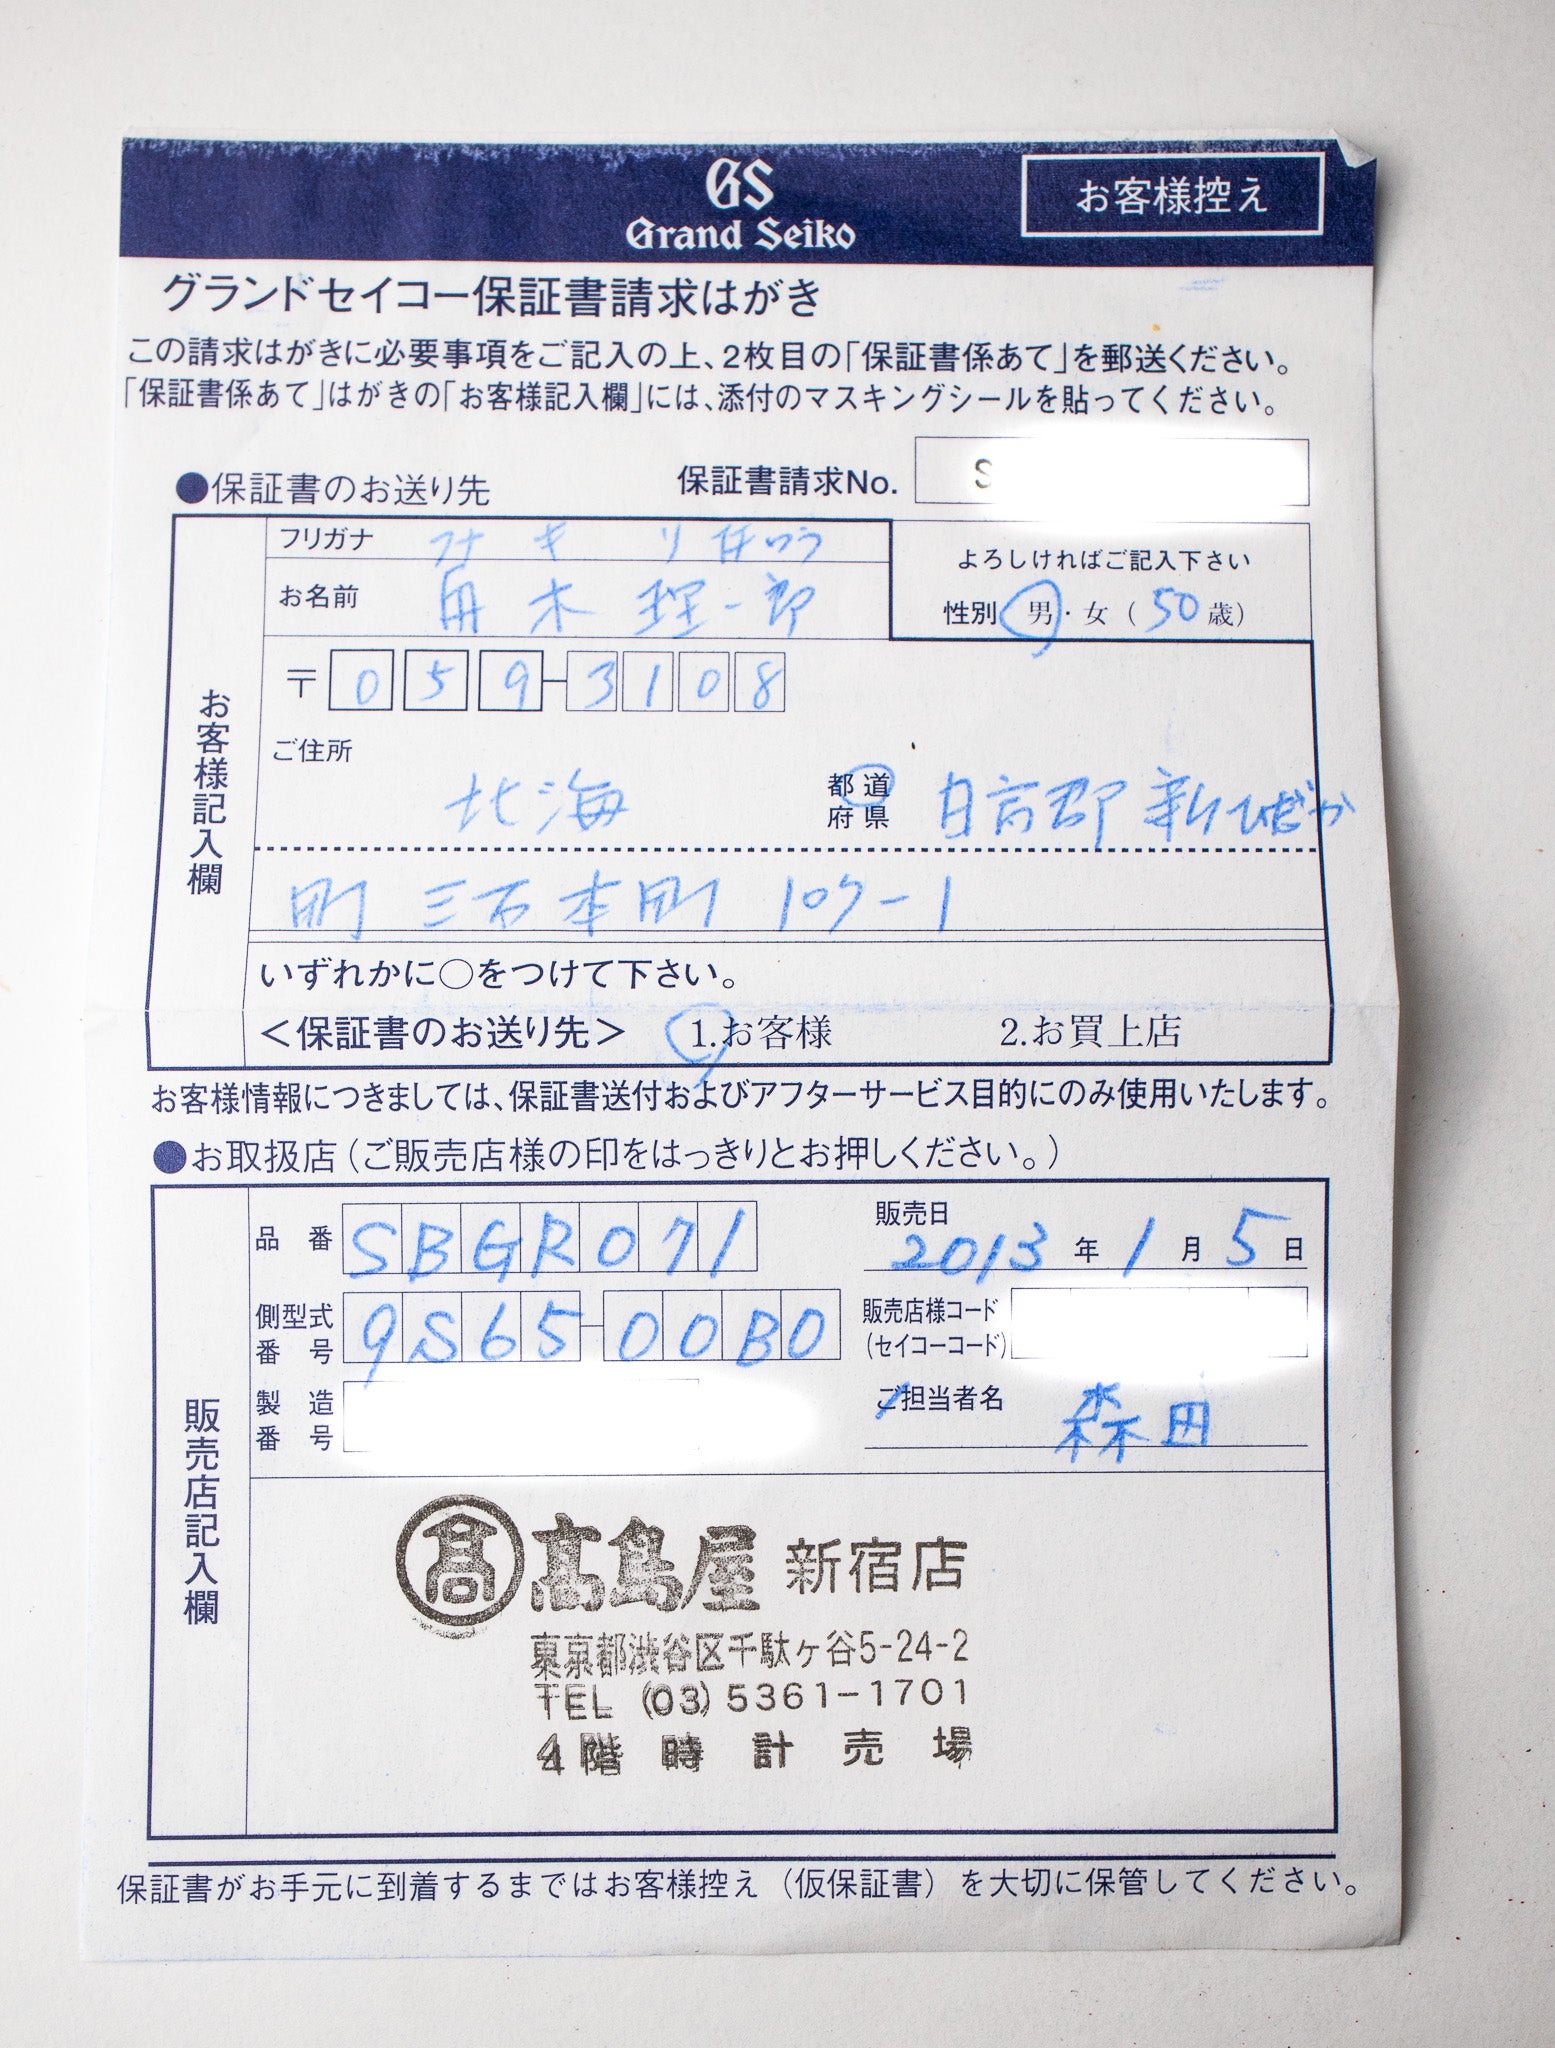 GS
Grand Seiko
お客様控え
グランドセイコー保証書請求はがき
この請求はがきに必要事項をご記入の上、2枚目の「保証書係あて」を郵送ください。
「保証書係あて」はがきの「お客様記入欄」には、添付のマスキングシールを貼ってください。
●保証書のお送り先
保証書請求No. S
お客様記入欄
フリガナ フナキ リイチロウ
お名前 舟木理一郎
よろしければご記入下さい
性別 男・女(50歳)
〒059-3108
ご住所
北海 都道府県 日高郡新ひだか
町三石本町107-1
いずれかに○をつけて下さい。
<保証書のお送り先> 1.お客様 2.お買上店
お客様情報につきましては、保証書送付およびアフターサービス目的にのみ使用いたします。
●お取扱店(ご販売店様の印をはっきりとお押しください。)
販売店記入欄
品番 SBGR071
販売日
2013年1月5日
側型式番号 9S65-00B0
販売店様コード
(セイコーコード)
製造番号
ご担当者名 森田
髙 髙島屋 新宿店
東京都渋谷区千駄ヶ谷5-24-2
TEL (03)5361-1701
4階時計売場
保証書がお手元に到着するまではお客様控え(仮保証書)を大切に保管してください。